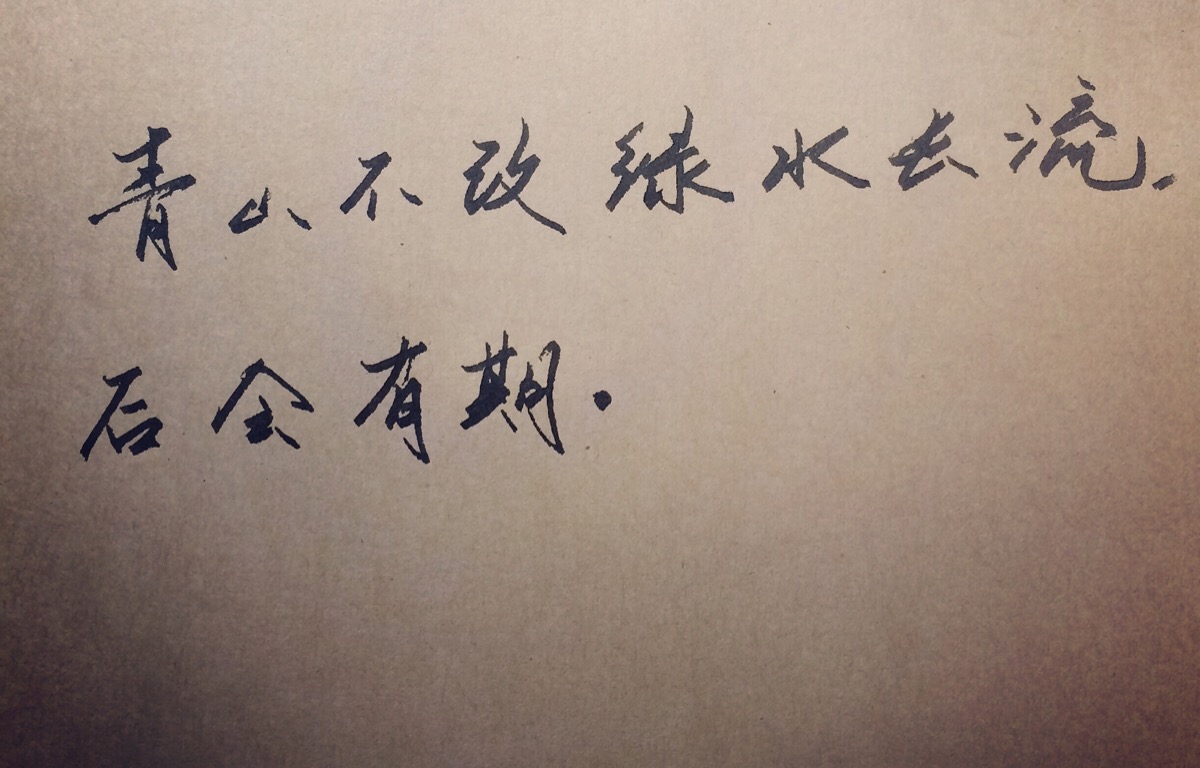 青山不改绿水长流.
后会有期.